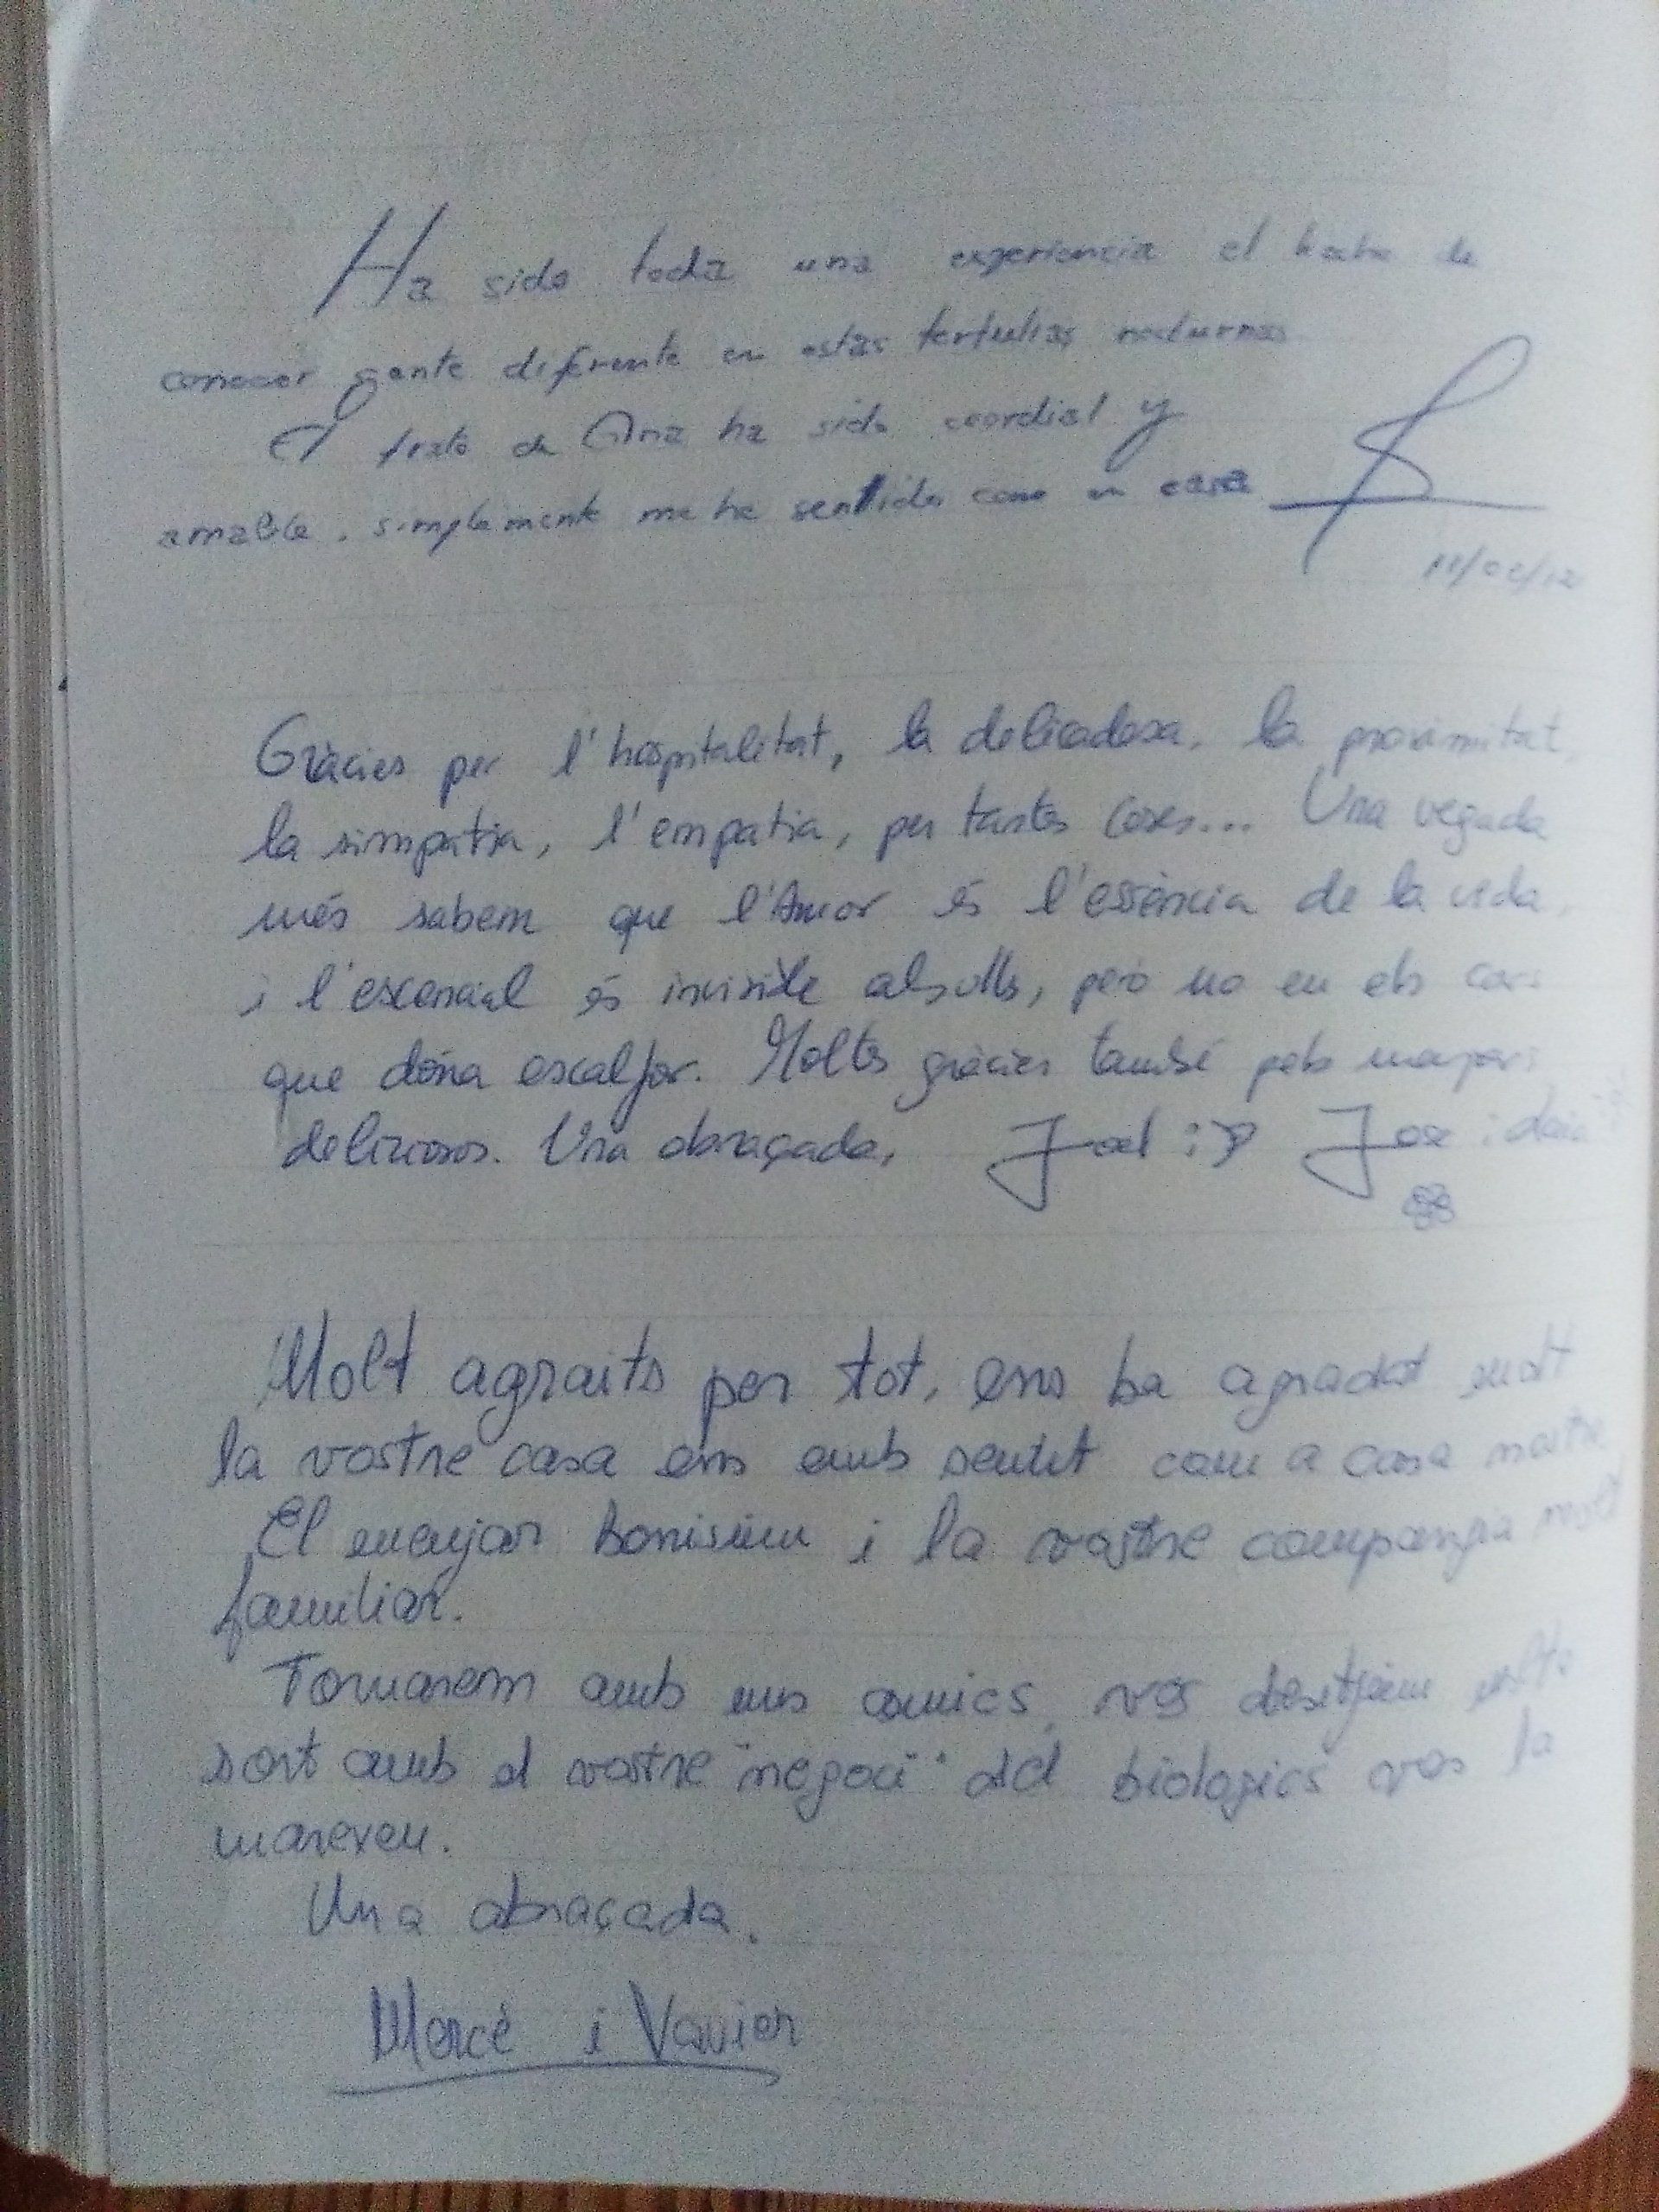 Ha sido toda una experiencia el hecho de
conocer gente diferente en estas tertulias nocturnas
El trato de Ana ha sido coordial y
amable, simplemente me he sentido como en casa
11/02/12
Gràcies per l'hospitalitat, la delicadesa, la proximitat,
la simpatia, l'empatia, per tantes coses... Una vegada
més sabem que l'Amor és l'essència de la vida,
i l'escencial és invisible als ulls, però no en els cors
que dóna escalfor. Moltes gràcies també pels menjars
deliciosos. Una abraçada, Joel :) Jose
Molt agraits per tot, ens ha agradat molt
la vostre casa ens emb sentit com a casa nostre
El menjar bonisim i la vostre companyia molt
familiar.
Tornarem amb uns amics, vos desitjem molta
sort amb el vostre "negoci" del biologics vos la
marexeu.
Una abraçada.
Mercè i Xavier